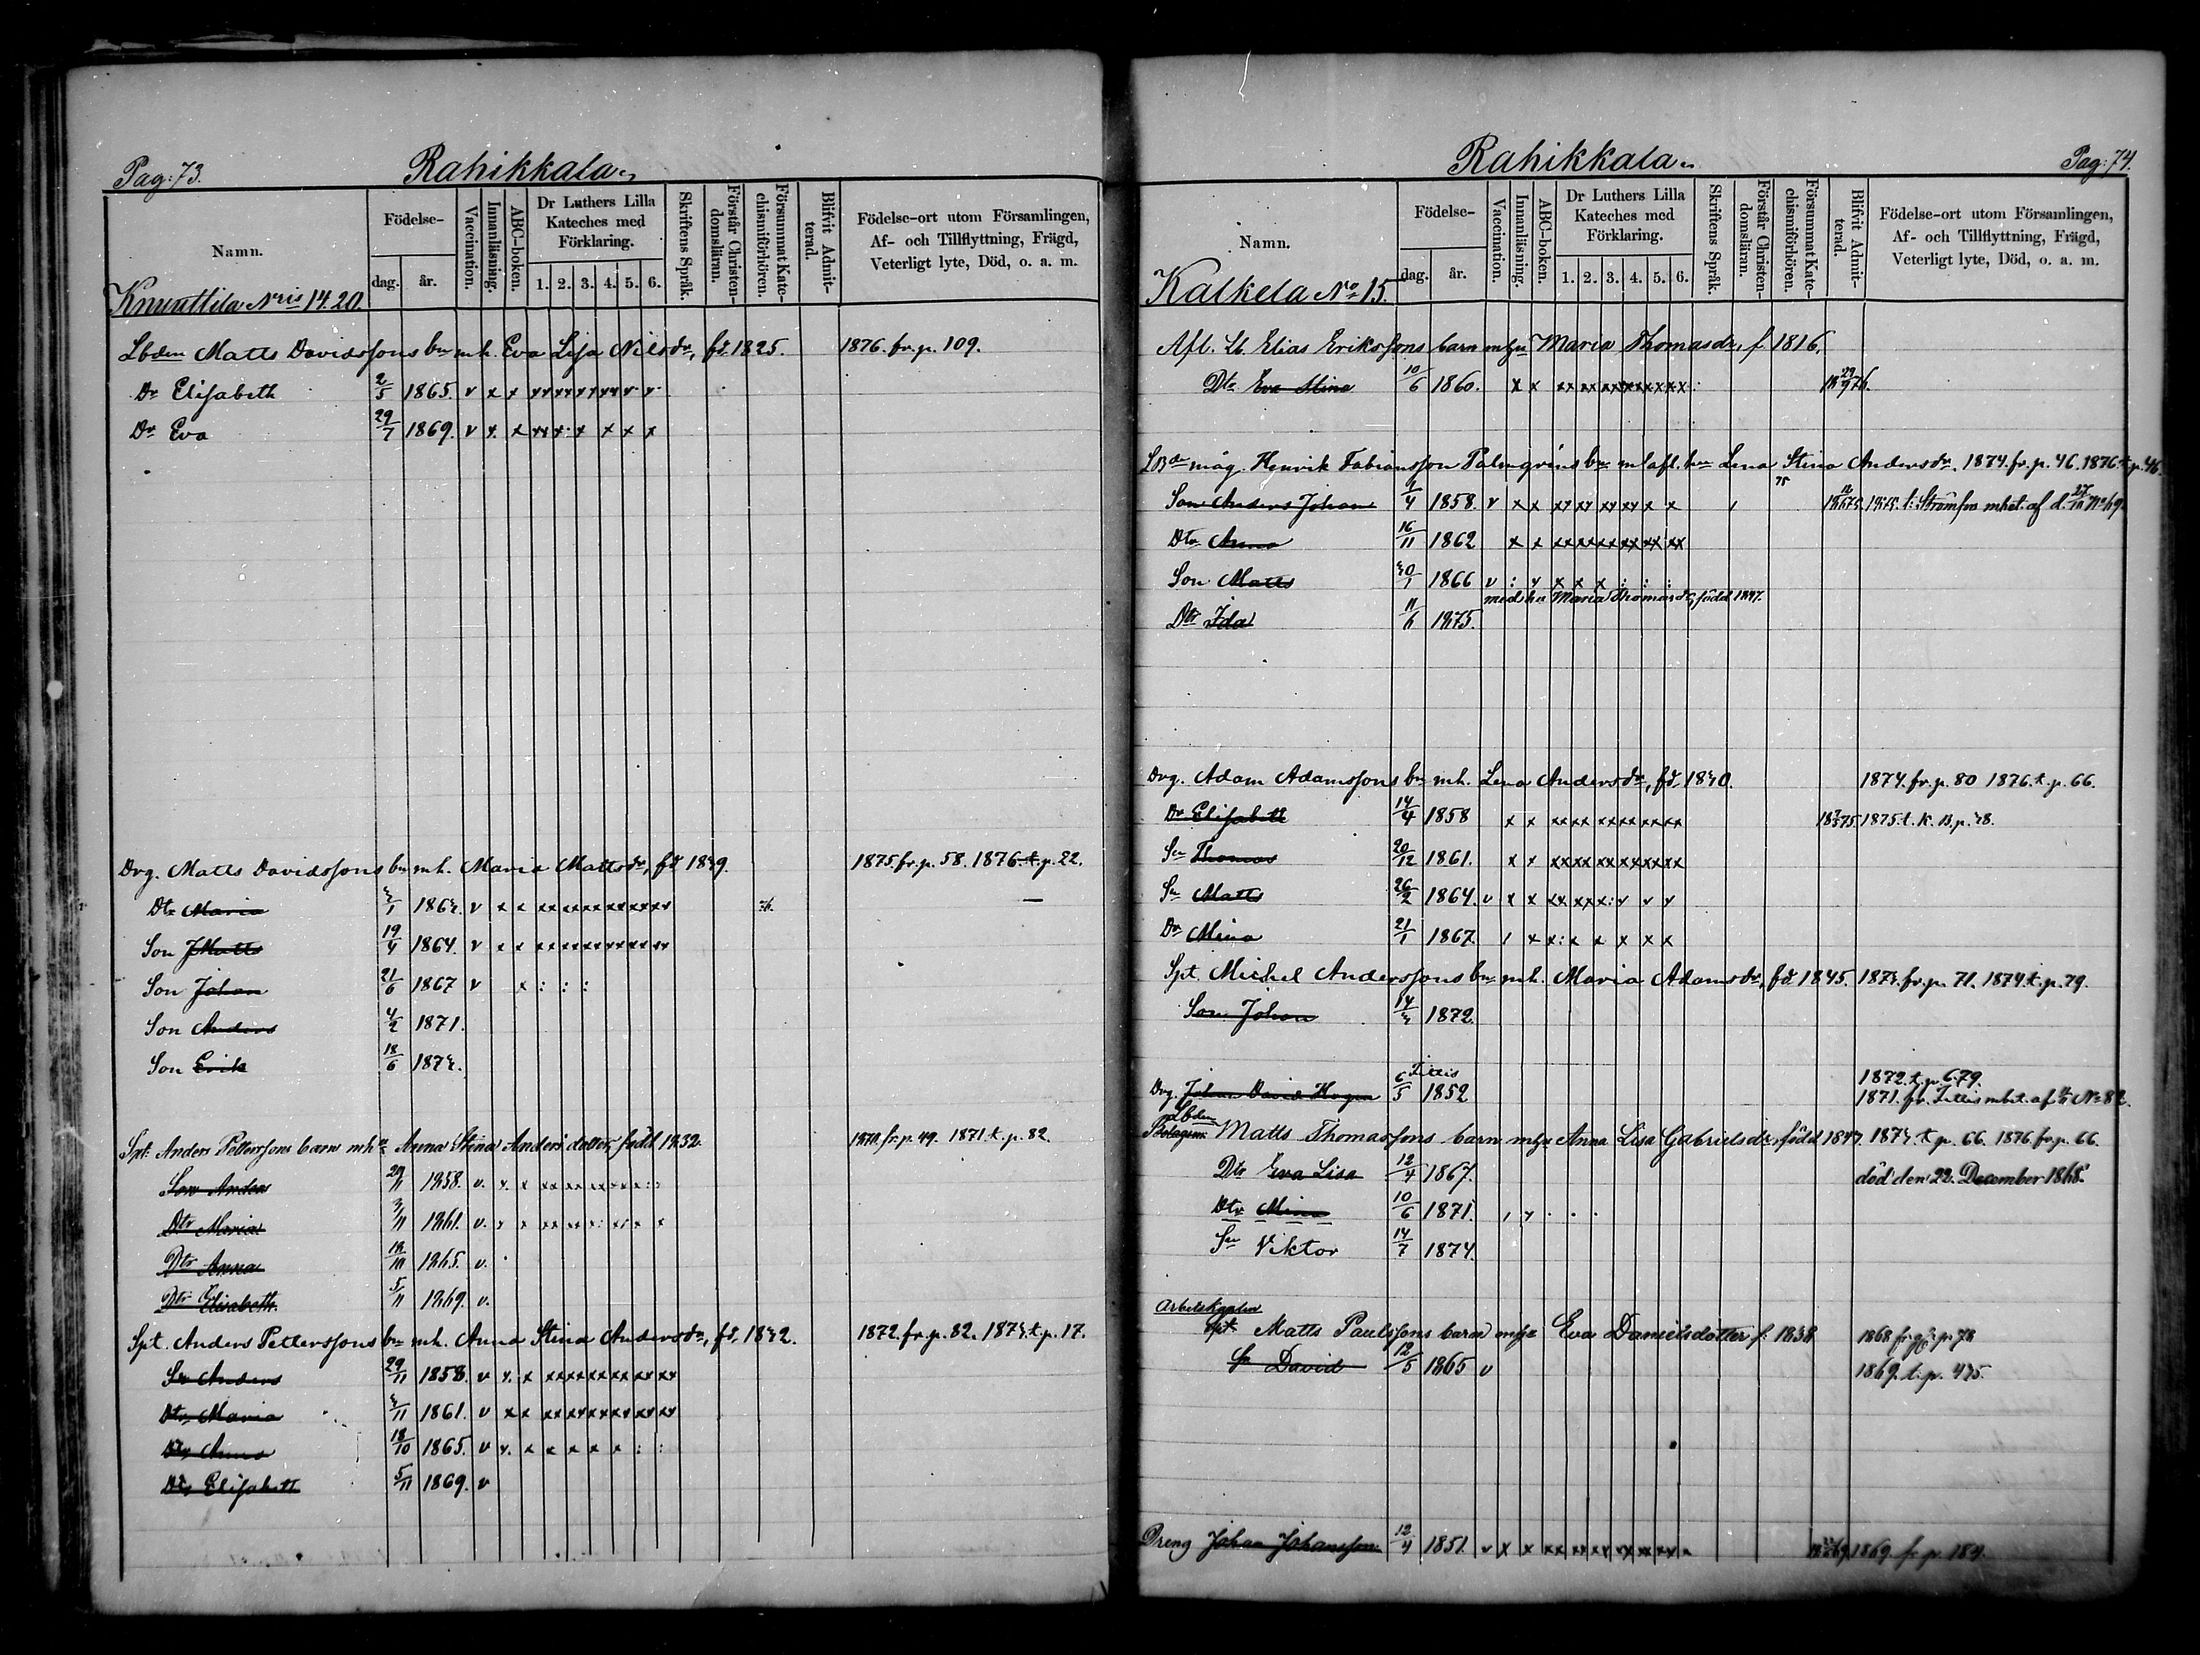 Pag: 73.
Rahikkala
Namn.
Födelse-
dag.
år.
Vaccination.
Innanläsning.
ABC-boken.
Dr Luthers Lilla Kateches med Förklaring.
1. 2. 3. 4. 5. 6.
Skriftens Språk.
Förstår Christendomsläran.
Försummat Katechismiförhören.
Blifvit Admitterad.
Födelse-ort utom Församlingen, Af- och Tillflyttning, Frägd, Veterligt lyte, Död, o. a. m.
Knuuttila Nris 14. 20.
Lbden Matts Davidssons bn mh. Eva Lisa Nilsdr, fd. 1825. 1876. fr. p. 109.
Dr Elisabeth 2/5 1865. v x x
Dr Eva 29/7 1869. v x x
Drg. Matts Davidssons bn mh. Maria Mattsdr, fd 1839. 1875. fr. p. 58. 1876 t. p. 22.
Dtr Maria 3/1 1863. v x x
Son Matts 19/4 1864. v x x
Son Johan 21/6 1867 v x : : :
Son Anders 4/2 1871.
Son Erik 18/6 1873.
Spt. Anders Petterssons barn mhu Anna Stina Andersdotter, född 1832. 1870. fr. p. 49. 1871 t. p. 82.
Son Anders 29/11 1858. v. x x
Dtr Maria 3/11 1861. v. x x
Dtr Anna 18/10 1865. v.
Dtr Elisabeth. 5/11 1869. v.
Spt. Anders Petterssons bn mh. Anna Stina Andersdr, fd. 1832. 1872. fr. p. 82. 1873. t. p. 17.
Sn Anders 29/11 1858. v x x
Dtr Maria 3/11 1861. v x x
Dtr Anna 18/10 1865. v x x x x x x : :
Dtr Elisabeth 5/11 1869. v
Rahikkala
Pag: 74.
Namn.
Födelse-
dag.
år.
Vaccination.
Innanläsning.
ABC-boken.
Dr Luthers Lilla Kateches med Förklaring.
1. 2. 3. 4. 5. 6.
Skriftens Språk.
Förstår Christendomsläran.
Försummat Katechismiförhören.
Blifvit Admitterad.
Födelse-ort utom Församlingen, Af- och Tillflyttning, Frägd, Veterligt lyte, Död, o. a. m.
Kalkela No 15.
Afl. Lb. Elias Erikssons barn mhu Maria Thomasdr, f. 1816.
Dtr Eva Stina 10/6 1860. x x
måg. Henrik Fabiansson Palmqvins bn m afl. hu Lena Stina Andersdr. 1874. fr. p. 46. 1876 t. p. 46.
Son Anders Johan 1858. v x x 1875. t. Strömfors mbet. af d. No 69.
Dtr Anna 16/11 1862 x x
Son Matts 30/1 1866 v : x x x x : : :
med hu Maria Thomasdr, född 1847.
Dtr Ida 11/6 1875.
Drg. Adam Adamssons bn mh. Lena Andersdr, fd. 1830. 1874. fr. p. 80 1876. t. p. 66.
Dr Elisabeth 14/4 1858 x x 1875. t. K. B. p. 38.
Sn Thomas 20/12 1861. x x
Sn Matts 26/2 1864. v x x
Dr Mina 21/1 1867.
Spt. Michel Anderssons bn mh. Maria Adamsdr, fd. 1845. 1873. fr. p. 71. 1874 t. p. 79.
Son Johan 14/3 1872
Littis
Drg. Johan David Hogen 6/5 1852 1872. t. p. 679.
1871. fr. Littis mbet. af No 82.
Lbden
Matts Thomassons barn mhu Anna Lisa Gabrielsdr, född 1847. 1873 t. p. 66. 1876 fr. p. 66.
Dtr Eva Lisa 12/4 1867. död den 22. December 1868.
Dtr Mina 10/6 1871.
Sn Viktor 14/7 1874.
Arbetskarlen
Spt Matts Paulssons barn mhu Eva Danielsdotter f. 1838 1868 fr. p. 78
Sn David 12/5 1865 v 1869. t. p. 475.
Dreng Johan Johansson 12/4 1851. v x x 1869. fr. p. 184.